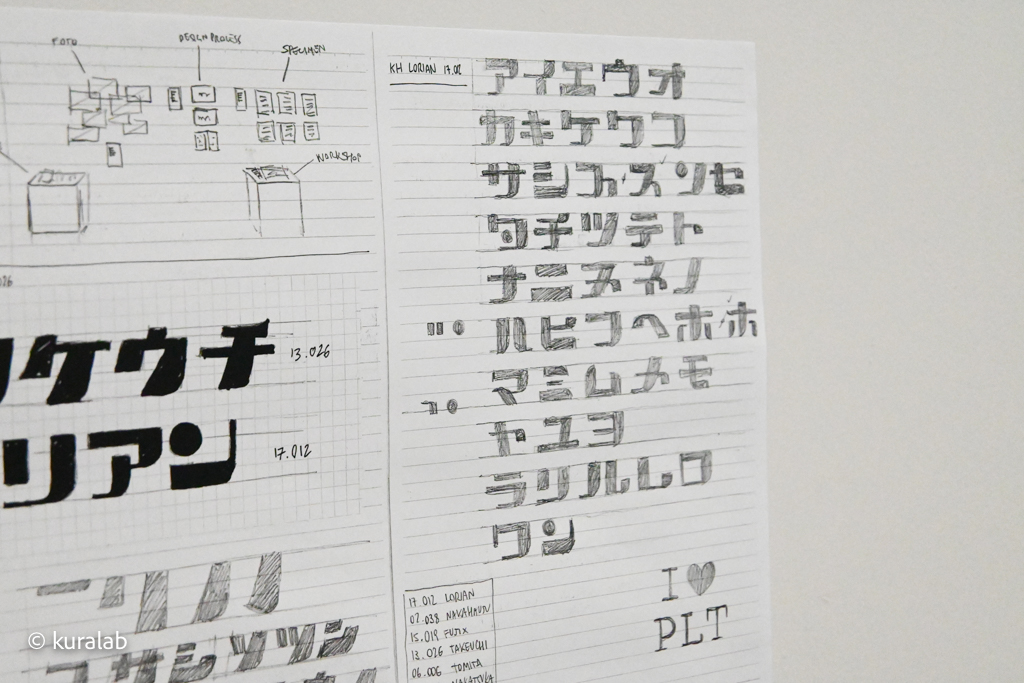 FOTO
DESIGN PROCESS
SPECIMEN
WORKSHOP
ケウチ 13.026
リアン 17.012
KH LORIAN 17.012
アイエウオ
カキケククコ
サシスソセ
タチツテト
ナニヌネノ
ハヒフヘホホ
マミムメモ
ヤユヨ
ラリルレロ
ワン
17.012 LORIAN
02.038 NAKAMURA
15.019 FUJIX
13.026 TAKEUCHI
06.006 TOMITA
I ♥
PLT
サシツツシ
© kuralab